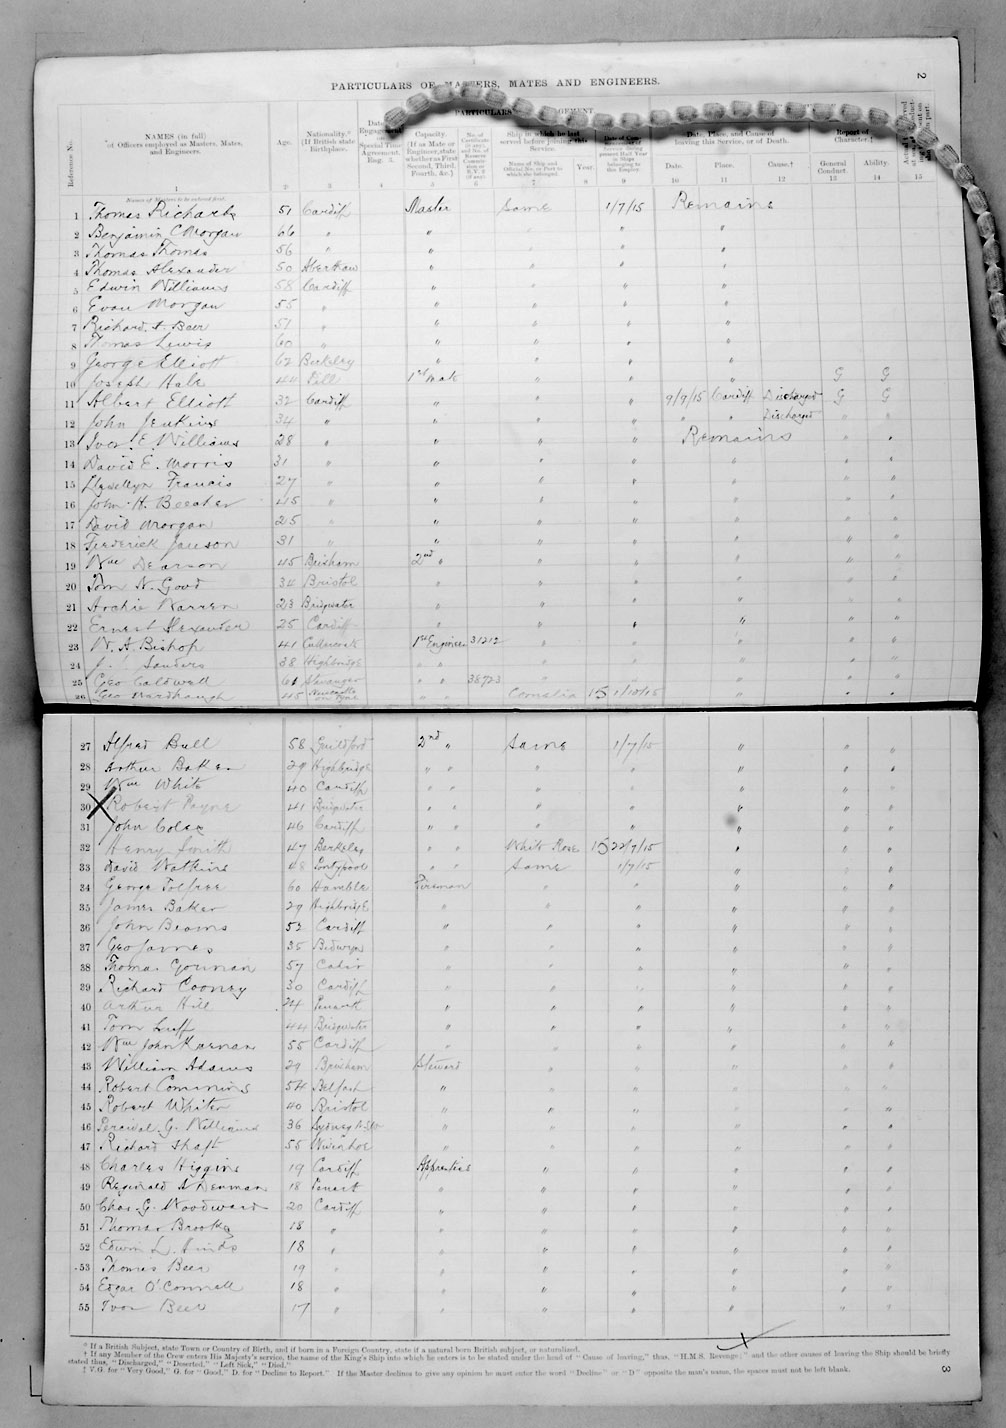 2
PARTICULARS OF MASTERS, MATES AND ENGINEERS.
Reference No. NAMES (in full) of Officers employed as Masters, Mates, and Engineers. Age. Nationality.* (If British state Birthplace). Capacity. (If as Mate or Engineer, state whether as First Second, Third, Fourth, &c.) No. of Certificate Ship in which he last served before joining this Service. Name of Ship and Official No. or Port to which she belonged. Year. Date, Place, and Cause of leaving this Service, or of Death. Date. Place. Cause.† Report of Character. General Conduct. Ability.
1 2 3 4 5 6 7 8 9 10 11 12 13 14 15
Names of Masters to be entered first.
1 Thomas Richards 51 Cardiff Master Same 1/7/15 Remains
2 Benjamin C Morgan 66 " " " " "
3 Thomas Thomas 56 " " " " "
4 Thomas Alexander 50 Aberthaw " " " "
5 Edwin Williams 58 Cardiff " " " "
6 Evan Morgan 55 " " " " "
7 Richard Beer 51 " " " " "
8 Thomas Lewis 60 " " " " "
9 George Elliott 62 Berkeley " " " "
10 Joseph Hale 44 Pill 1st Mate " " " G G
11 Albert Elliott 32 Cardiff " " " 9/9/15 Cardiff Discharged G G
12 John Jenkins 34 " " " " " " Discharged " "
13 Ivor E. Williams 28 " " " " Remains " "
14 David E. Morris 31 " " " " " " "
15 Llewellyn Francis 27 " " " " " " "
16 John H. 45 " " " " " " "
17 David Morgan 25 " " " " " " "
18 Frederick Janson 31 " " " " " " "
19 Wm Dearson 45 Brixham 2nd " " " " " "
20 Tom N. Good 34 Bristol " " " " " "
21 Archie Warren 23 Bridgwater " " " " " "
22 Ernest Alexander 25 Cardiff " " " " " "
23 W. A. Bishop 41 1st Engineer 31212 " " " " "
24 Sanders 38 Highbridge " " " " " " "
25 Geo Caldwell 61 Stavanger " " 38723 " " " " "
26 Geo Mardhaugh 45 Newcastle on Tyne " " Cornelia 15 1/10/15 " " "
27 Alfred Bull 58 Guildford 2nd " Same 1/7/15 " " "
28 Arthur Baker 29 Highbridge " " " " " " "
29 Wm White 40 Cardiff " " " " " " "
30 Robert Payne 41 Bridgwater " " " " " " "
31 John Coles 46 Cardiff " " " " " " "
32 Henry Smith 47 Berkeley " " White Rose 15 22/7/15 " " "
33 David Watkins 48 Pontypool " " Same 1/7/15 " " "
34 George Tolfree 60 Hamble Fireman " " " " "
35 James Baker 29 Highbridge " " " " " "
36 John Beams 52 Cardiff " " " " " "
37 Geo James 35 Bedwyn " " " " " "
38 Thomas Gorman 57 Cahir " " " " " "
39 Richard Cooney 30 Cardiff " " " " " "
40 Arthur Hill 24 Penarth " " " " " "
41 Tom Luff 44 Bridgwater " " " " " "
42 Wm John Kiernan 55 Cardiff " " " " " "
43 William Adams 29 Brixham Steward " " " " "
44 Robert Commins 54 Belfast " " " " " "
45 Robert Whiter 40 Bristol " " " " " "
46 Percival G. Williams 36 Sydney N.SW " " " " " "
47 Richard Shaft 55 Wivenhoe " " " " " "
48 Charles Higgins 19 Cardiff Apprentice " " " " "
49 Reginald A Denman 18 Penarth " " " " " "
50 Chas. G. Woodward 20 Cardiff " " " " " "
51 Thomas Brooks 18 " " " " " " "
52 Edwin L. Hinds 18 " " " " " " "
53 Thomas Beer 19 " " " " " " "
54 Edgar O'Connell 18 " " " " " " "
55 Ivor Beer 17 " " " " " " "
* If a British Subject, state Town or Country of Birth, and if born in a Foreign Country, state if a natural born British subject, or naturalized.
† If any Member of the Crew enters His Majesty's service, the name of the King's Ship into which he enters is to be stated under the head of "Cause of leaving," thus, "H.M.S. Revenge;" and the other causes of leaving the Ship should be briefly
stated thus, "Discharged," "Deserted," "Left Sick," "Died."
‡ V.G. for "Very Good," G. for "Good," D. for "Decline to Report." If the Master declines to give any opinion he must enter the word "Decline" or "D" opposite the man's name, the spaces must not be left blank.
3